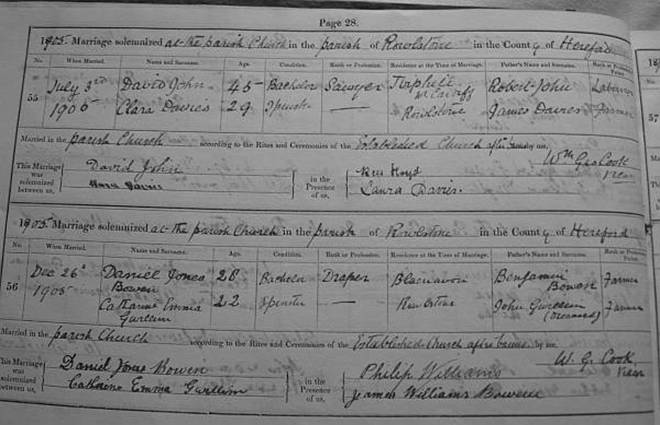 Page 28.
1905. Marriage solemnized at the parish Church in the parish of Rowlstone in the County of Hereford
No. When Married. Name and Surname. Age. Condition. Rank or Profession. Residence at the Time of Marriage. Father's Name and Surname. Rank or Profession of Father.
55 July 3rd David John 45 Bachelor Sawyer nr Cardiff Robert John Labourer
1905 Clara Davies 29 Spinster — Rowlstone James Davies Farmer
Married in the parish Church according to the Rites and Ceremonies of the Established Church after by me,
Wm Geo Cook
Vicar
This Marriage was solemnized between us, David John
Clara Davies
in the Presence of us, Rees Lloyd
Laura Davies.
1905 Marriage solemnized at the parish Church in the parish of Rowlstone in the County of Hereford
No. When Married. Name and Surname. Age. Condition. Rank or Profession. Residence at the Time of Marriage. Father's Name and Surname. Rank or Profession of Father.
56 Dec 26th Daniel Jones Bowen 28 Bachelor Draper Blaenavon Benjamin Bowen Farmer
1905 Catharine Emma Gwillim 22 Spinster — Rowlstone John Gwillim (Deceased) Farmer
Married in the parish Church according to the Rites and Ceremonies of the Established Church after banns by me,
W. G. Cook,
Vicar
This Marriage was solemnized between us, Daniel Jones Bowen
Catharine Emma Gwillim
in the Presence of us, Philip Williams
James Williams Bowen
57